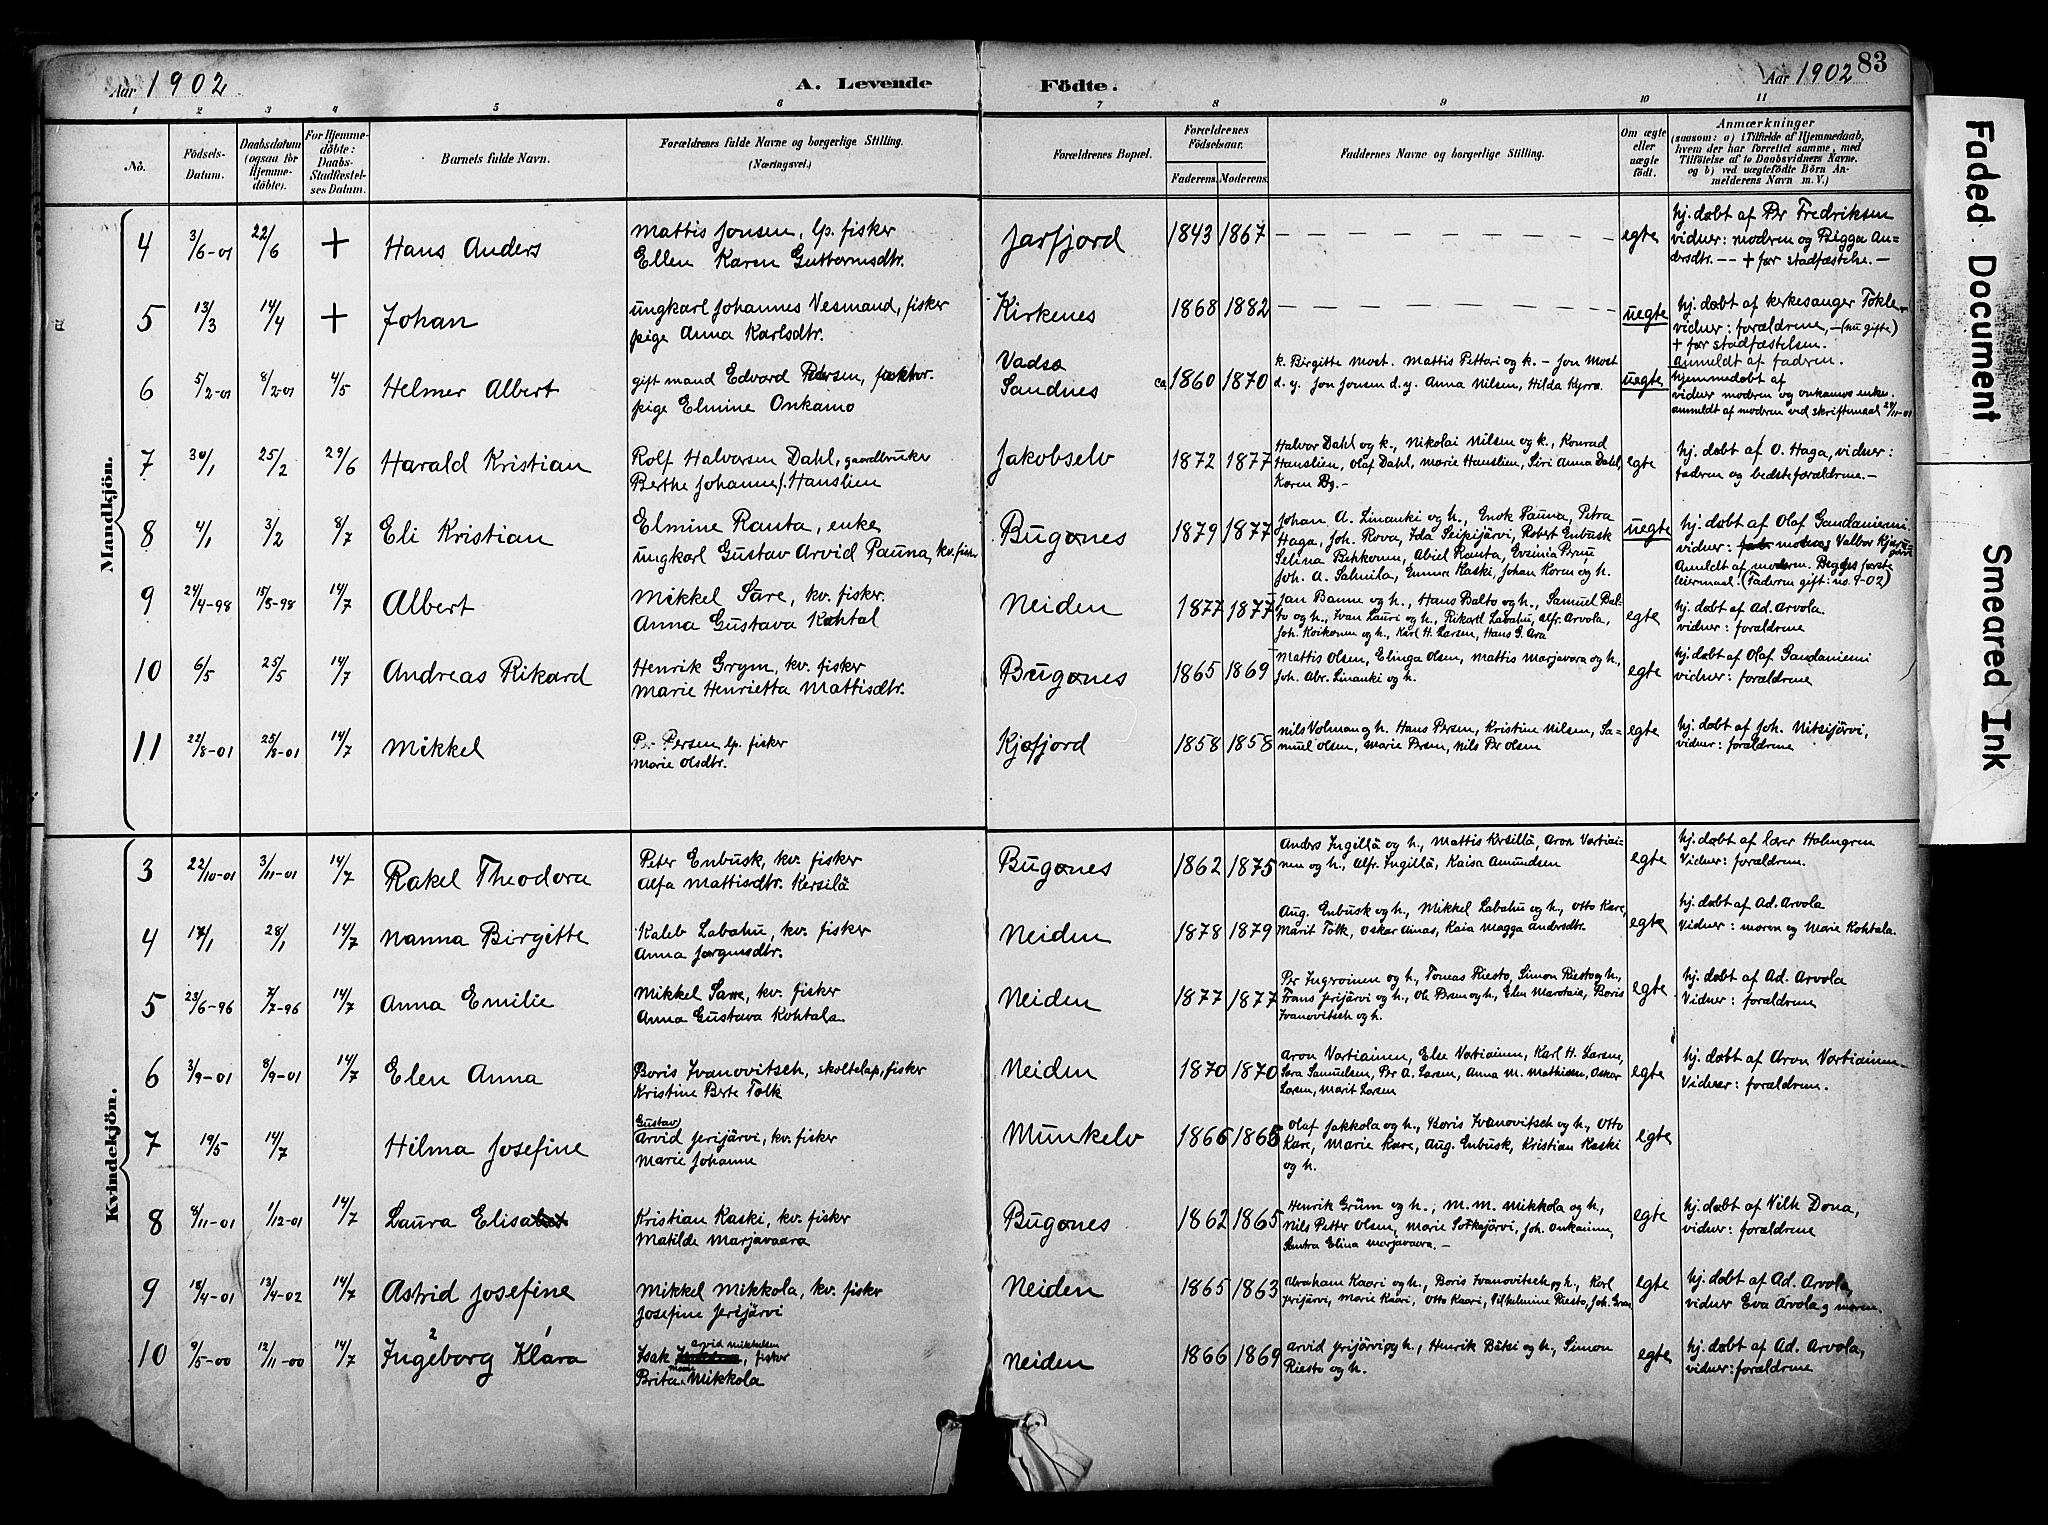 Aar 1902 A. Levende Födte. Aar 1902 83
1 2 3 4 5 6 7 8 9 10 11
No.
Födsels-
Datum.
Daabsdatum
(ogsaa for
Hjemme-
döbte).
For Hjemme-
döbte:
Daabs-
Stadfæstel-
ses Datum.
Barnets fulde Navn.
Forældrenes fulde Navne og borgerlige Stilling.
(Næringsvei.)
Forældrenes Bopæl.
Forældrenes
Födselsaar.
Faderens. Moderens.
Faddernes Navne og borgerlige Stilling.
Om ægte
eller
uægte
födt.
Anmærkninger
(saasom: a) i Tilfælde af Hjemmedaab,
hvem der har forrettet samme, med
Tilföielse af to Daabsvidners Navne.
og b) ved uægtefödte Börn An-
melderens Navn m. V.)
Faded Document
Smeared Ink
Mandkjön.
4 3/6-01 22/6 + Hans Anders
Mattis Jonsen, lp. fisker
Ellen Karen Guttormsdtr.
Jarfjord 1843 1867 — — — — — — — — — egte
hj. døbt af Pr Fredriksen
vidner: modren og Bigga An-
dersdtr. -- + før stadfæstelse. —
5 13/3 14/4 + Johan
ungkarl Johannes Vesmand, fisker
pige Anna Karlsdtr.
Kirkenes 1868 1882 — — — — — — — — — uegte
hj. døbt af kirkesanger Tokle-
vidner: forældrene, — (nu gifte)
+ før stadfæstelsen.
anmeldt af fadren.
6 5/2-01 8/2-01 4/5 Helmer Albert
gift mand Edvard Petersen,
pige Elmine Onkamo
Vadsø
Sandnes ca 1860 1870
k. Birgitte Most. Mattis Pettari og k. — Jon Most
d. y. Jon Jonsen d. y. Anna Nilsen, Hilda Kyrrø
uegte
hjemmedøbt af
vidner modren og Onkamos enke.
anmeldt af modren ved skriftemaal 24/11-01
7 30/1 25/2 29/6 Harald Kristian
Rolf Halvorsen Dahl, gaardbruker
Berthe Johanne J. Hanslien
Jakobselv 1872 1877
Halvor Dahl og k., Nikolai Nilsen og k., Konrad
Hanslien, Olaf Dahl, Marie Hanslien, Siri Anna Dahl,
Karen Bg. —
egte
hj. døbt af O. Haga, vidner:
fadren og bedsteforældrene. —
8 4/1 3/2 8/7 Eli Kristian
Elmine Ranta, enke
ungkarl Gustav Arvid Pauna, kv. fisker
Bugønes 1879 1877
Johan A. Linanki og h., Enok Pauna, Petra
Haga, Joh. Rova, Ida Seipijärvi, Robert Enbusk
Selina Pekkonen, Abiel Ranta, Evsinia
Joh. A. Salmila, Emma Kaski, Johan Koren og h.
uegte
hj. døbt af Olaf Gandaniemi
vidner: modres, Valbor
Anmeldt af modren. Begges første
leiermaal. (Faderen gift: no. 9-02)
9 24/4-98 15/5-98 14/7 Albert
Mikkel Sare, kv. fisker.
Anna Gustava Kohtal
Neiden 1877 1877
Jan Banne og h., Hans Balto og h., Samuel Bal-
to og h., Ivan Lauri og h., Rikard Labahu, Alfr. Arvola,
Joh. Koikonen og h., Karl H. Larsen, Hans G. Ara
egte
hj. døbt af Ad. Arvola.
vidner: forældrene
10 6/5 25/5 14/7 Andreas Rikard
Henrik Grym, kv. fisker
Marie Henrietta Mattisdtr.
Bugønes 1865 1869
Mattis Olsen, Elinga Olsen, Mattis Marjavara og h,
Joh. Abr. Linanki og h.
egte
hj. døbt af Olaf Gandaniemi
vidner: forældrene
11 22/8-01 25/8-01 14/7 Mikkel
Pr. Persen lp. fisker
Marie Olsdtr.
Kjøfjord 1858 1858
Nils Volman og h. Hans Persen, Kristine Nilsen, Sa-
muel Olsen, Marie Persen, Nils Pr Olsen
egte
hj. døbt af Joh. Nitsijärvi,
vidner: forældrene
Kvindekjön.
3 22/10-01 3/11-01 14/7 Rakel Theodora
Peter Enbusk, kv. fisker
Alfa Mattisdtr. Kersilä
Bugønes 1862 1875
Anders Ingillä og h., Mattis Kersillä, Aron Vartiai-
nen og h., Alfr. Ingillä, Kaisa Amundsen
egte
hj. døbt af Lærer Holmgren
Vidner: forældrene.
4 17/1 28/1 14/7 Nanna Birgitte
Kaleb Labahu, kv. fisker
Anna Jørgensdtr.
Neiden 1878 1879
Aug. Enbusk og h., Mikkel Labahu og h., Otto Kare,
Marit Tolk, Oskar Ainas, Kaia Magga Andersdtr.
egte
hj. døbt af Ad. Arvola
Vidner: moren og Marie Kohtala.
5 23/6-96 7/7-96 14/7 Anna Emilie
Mikkel Sare, kv. fisker
Anna Gustava Kohtala.
Neiden 1877 1877
Per Ingroinen og h., Tomas Riesto, Simon Riesto og h.,
Frans Jerijärvi og h., Ole Persen og h., Elen Marotaia, Boris
Ivanovitsch og h.
egte
hj. døbt af Ad. Arvola
Vidner: forældrene
6 3/9-01 8/9-01 14/7 Elen Anna
Boris Ivanovitsch, skoltelap, fisker
Kristine Berte Tolk
Neiden 1870 1870
Aron Vartiainen, Else Vartiainen, Karl H. Larsen,
Sara Samuelsen, Per A. Larsen, Anna M. Mathisen, Oskar
Larsen, Marit Larsen
egte
hj. døbt af Aron Vartiainen
Vidner: forældrene.
7 19/5 14/7 Hilma Josefine
Gustav
Arvid Jerijärvi, kv. fisker
Marie Johanne
Munkelv 1866 1865
Olaf Jakkola og h., Boris Ivanovitsch og h., Otto
Kare, Marie Kare, Aug. Enbusk, Kristian Kaski
og h.
egte
8 8/11-01 1/12-01 14/7 Laura Elisabet
Kristian Kaski, kv. fisker
Matilde Marjavaara
Bugønes 1862 1865
Henrik Grüm og h., M. M. Mikkola og h.,
Nils Petter Olsen, Marie Sotkajärvi, Joh. Onkamo,
Santra Elina Marjavaara. —
egte
hj. døbt af Vilh Dona,
vidner: forældrene
9 18/4-01 13/4-02 14/7 Astrid Josefine
Mikkel Mikkola, kv. fisker
Josefine Jerijärvi
Neiden 1865 1863
Abraham Kaari og h., Boris Ivanovitsch og h., Karl
Jerijärvi, Marie Kaari, Otto Kaari, Vilhelmine Riesto, Joh. Gran
egte
hj. døbt af Ad. Arvola,
vidner Eva Arvola og moren.
10 9/5-00 12/11-00 14/7 Ingeborg Klara
2 1
Arvid Mikkelsen
Isak , fisker
Marie
Brita Mikkola
Neiden 1866 1869
Arvid Jerijärvi og h., Henrik Bäki og h., Simon
Riesto og h.
egte
hj. døbt af Ad. Arvola,
vidner: forældrene